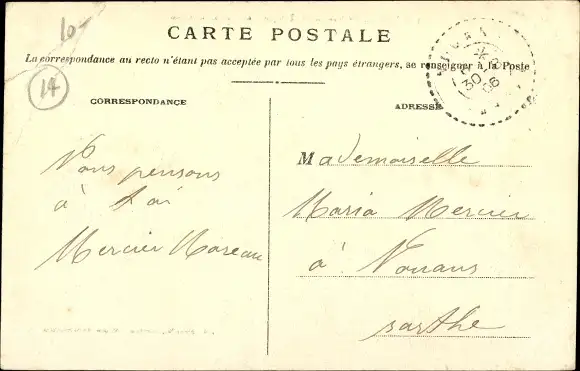 10-
CARTE POSTALE
La correspondance au recto n'étant pas acceptée par tous les pays étrangers, se renseigner à la Poste
14
30
06
CORRESPONDANCE
Nous pensons
à toi
Mercier Moreau
ADRESSE
Mademoiselle
Maria Mercier
à Nouans
sarthe